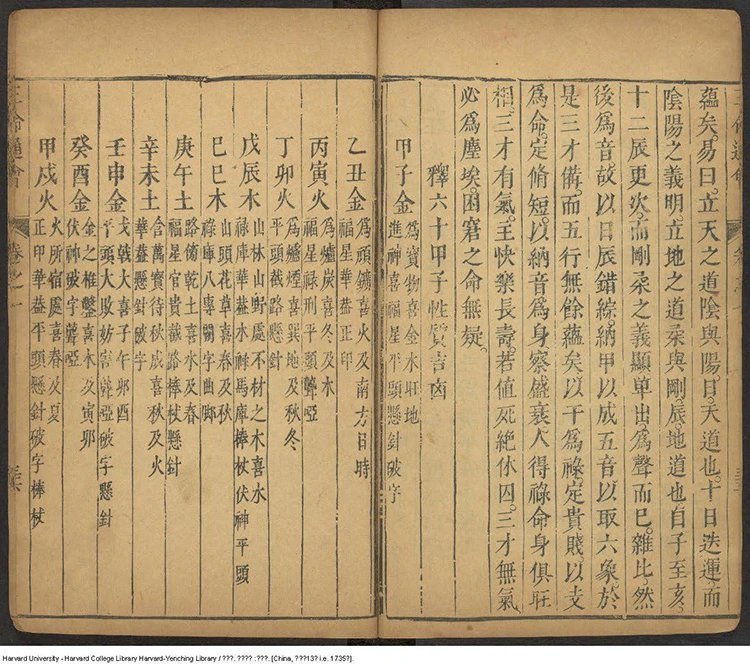 蘊矣。易曰。立天之道陰與陽。日。天道也。十日迭運。而
陰陽之義明。立地之道柔與剛。辰。地道也。自子至亥。
十二辰更次。而剛柔之義顯。單出爲聲而已。雜比。然
後爲音。故以日辰錯綜。納甲以成五音。以取六象。於
是三才備。而五行無餘蘊矣。以干爲祿。定貴賤。以支
爲命。定脩短。以納音爲身。察盛衰。人得祿命身俱旺
相。三才有氣。主快樂長壽。若值死絶休囚。三才無氣。
必爲塵埃。困窘之命無疑。
釋六十甲子性質吉凶
甲子金 爲寶物喜金木旺地
進神喜福星平頭懸針破字
乙丑金 爲頑鑛喜火及南方日時
福星華葢正印
丙寅火 爲爐炭喜冬及木
福星祿刑平頭聾啞
丁卯火 爲爐煙喜巽地及秋冬
平頭截路懸針
戊辰木 山林山野處不材之木喜水
祿庫華葢水祿馬庫棒杖伏神平頭
己巳木 山頭花草喜春及秋
祿庫八專闕字曲脚
庚午土 路傍乾土喜水及春
福星官貴截路棒杖懸針
辛未土 含萬寶待秋成喜秋及火
華葢懸針破字
壬申金 戈戟大喜子午卯酉
平頭大敗妨害聾啞破字懸針
癸酉金 金之椎鑿喜木及寅卯
伏神破字聾啞
甲戌火 火所宿處喜春及夏
正印華葢平頭懸針破字棒杖
卷之一
Harvard University - Harvard College Library Harvard-Yenching Library / ???. ???? :???. [China, ???13? i.e. 1735?].